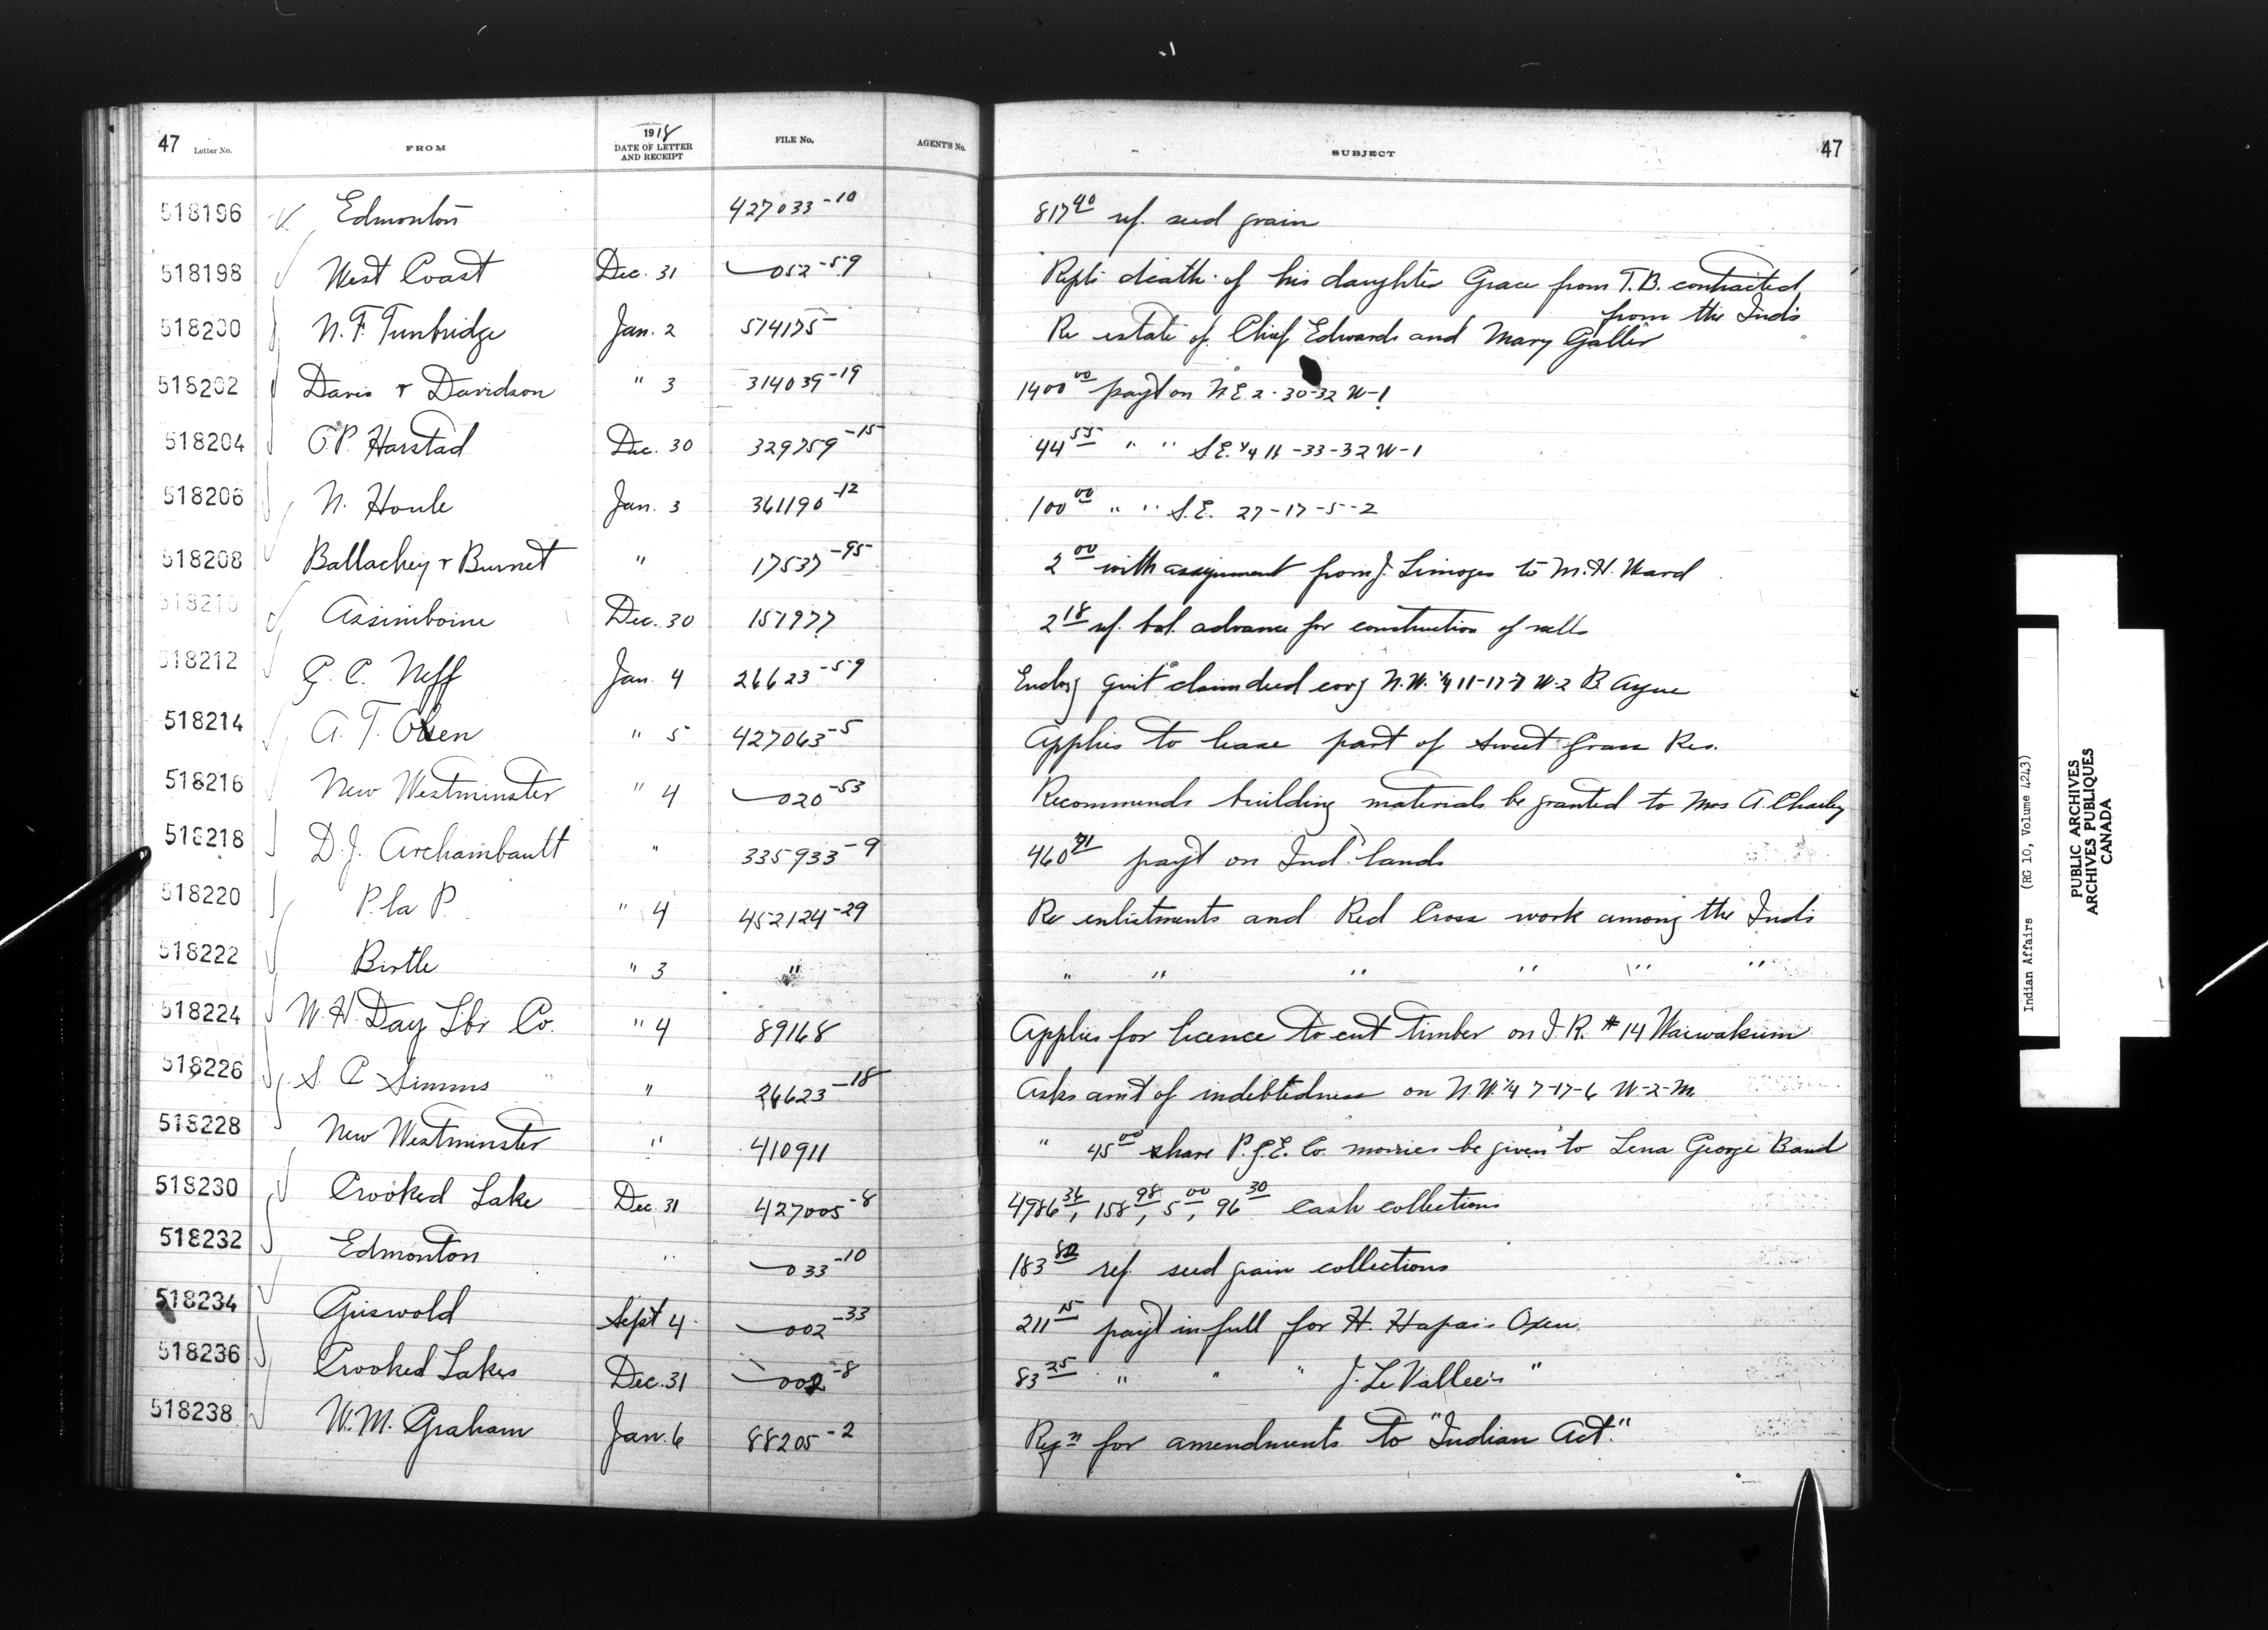 47 Letter No. FROM 1918 DATE OF LETTER AND RECEIPT FILE No. AGENT'S No. SUBJECT 47
518196 Edmonton 427033-10 817 40 ref. seed grain
518198 West Coast Dec. 31 052-59 Repts death of his daughter Grace from T.B. contracted
from the Inds
518200 N. F. Tunbridge Jan. 2 574175 Re estate of Chief Edwards and Mary Galler
518202 Davis & Davidson " 3 314039-19 1400 00 payt on N.E. 2-30-32 W-1
518204 O.P. Harstad Dec. 30 329759-15 44 55 " " S.E. 1/4 11-33-32 W-1
518206 N. Houle Jan. 3 361190-12 100 00 " " S.E. 27-17-5-2
518208 Ballachey & Burnet " 17537-95 2 00 with assignment from J. Limoges to M.H. Ward
518210 Assiniboine Dec. 30 157977 2 18 ref. bal. advance for construction of wells
518212 G. C. Neff Jan. 4 26623-59 Enclosg quit claim deed covg N.W. 1/4 11-17-7 W-2 B. Ayne
518214 A. T. Olsen " 5 427063-5 Applies to lease part of Sweet Grass Res.
518216 New Westminster " 4 020-53 Recommends building materials be granted to Mrs A. Charley
518218 D.J. Archambault " 335933-9 460 71 payt on Ind. lands
518220 P. la P. " 4 452124-29 Re enlistments and Red Cross work among the Inds
518222 Birtle " 3 " " " " " " "
518224 W. H. Day Lbr Co. " 4 89168 Applies for licence to cut timber on I.R. #14 Waiwakum
518226 S. C. Simms " 26623-18 Asks amt of indebtedness on N.W. 1/4 7-17-6 W-2-M
518228 New Westminster " 410911 " 45 00 share P.G.E. Co. monies be given to Lena George Band
518230 Crooked Lake Dec. 31 427005-8 4986 36, 158 98, 5 00, 96 30 cash collections
518232 Edmonton " 033-10 183 80 ref. seed grain collections
518234 Griswold Sept 4. 002-33 211 15 payt in full for H. Hapa's Oxen.
518236 Crooked Lakes Dec. 31 002-8 83 25 " " " J. Le Vallee's "
518238 W. M. Graham Jan. 6 88205-2 Reqn for amendments to "Indian Act."
Indian Affairs (RG 10, Volume 4243)
PUBLIC ARCHIVES
ARCHIVES PUBLIQUES
CANADA